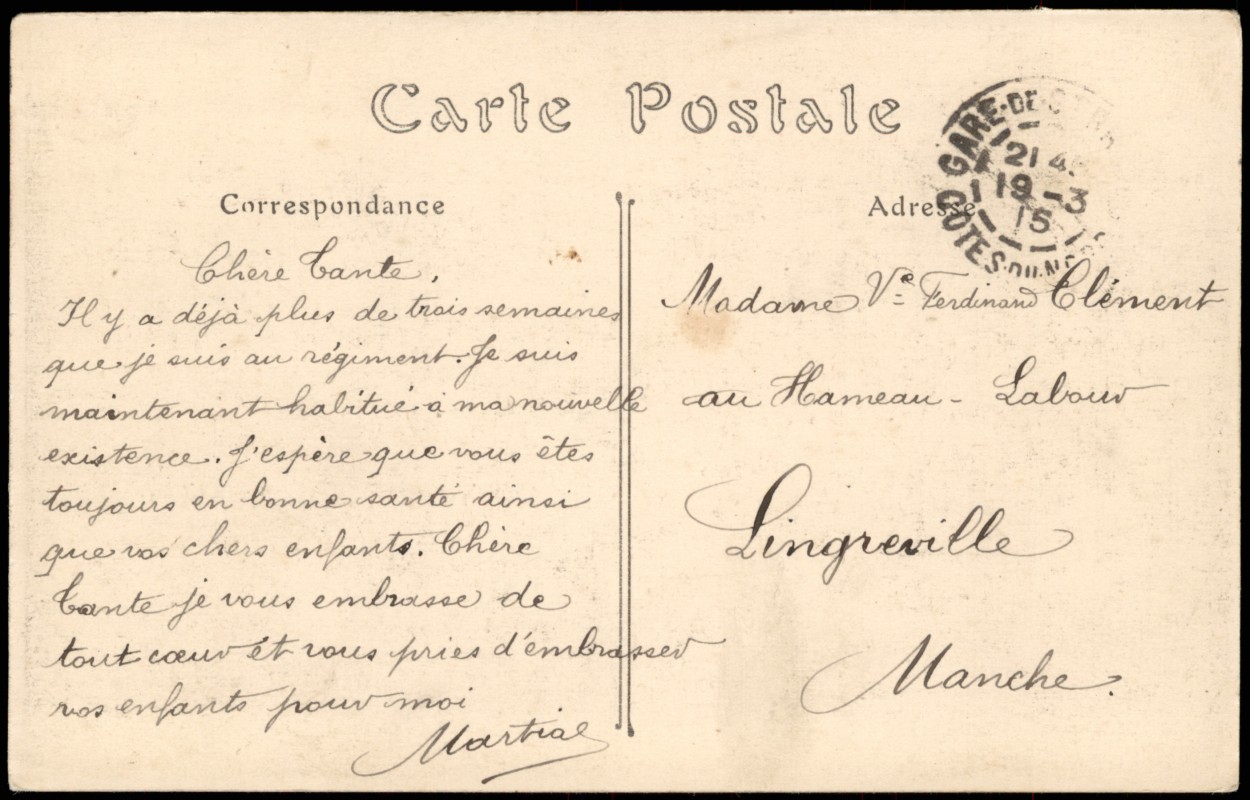 Carte Postale
Correspondance
Adresse
GARE-DE-
21 4
19 - 3
15
COTES-DU-N
Chère Tante,
Il y a déjà plus de trois semaines
que je suis au régiment. Je suis
maintenant habitué à ma nouvelle
existence. J'espère que vous êtes
toujours en bonne santé ainsi
que vos chers enfants. Chère
Tante je vous embrasse de
tout cœur et vous pries d'embrasser
vos enfants pour moi
Martial
Madame Vve Ferdinand Clément
au Hameau - Labour
Lingreville
Manche.